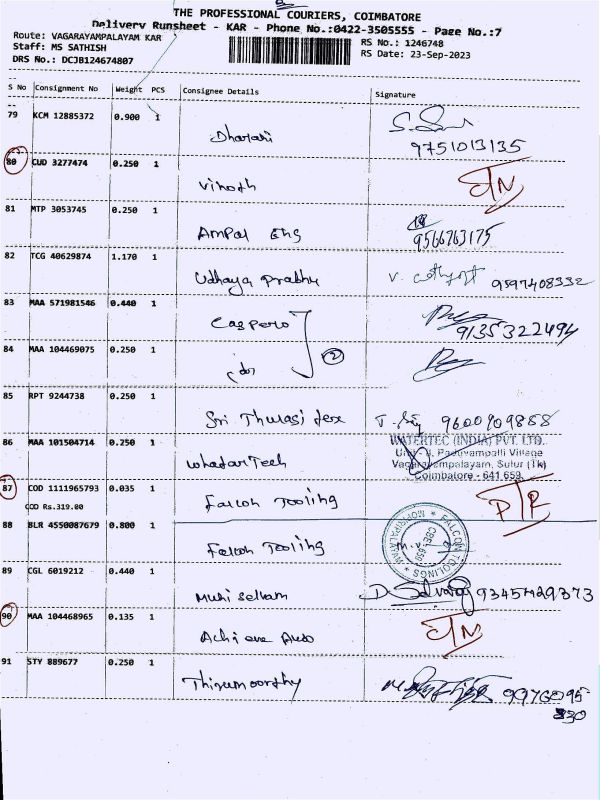 THE PROFESSIONAL COURIERS, COIMBATORE
Delivery Runsheet - KAR - Phone No.:0422-3505555 - Page No.:7
Route: VAGARAYAMPALAYAM KAR
Staff: MS SATHISH
DRS No.: DCJB124674807
RS No.: 1246748
RS Date: 23-Sep-2023
S No Consignment No Weight PCS Consignee Details Signature
79 KCM 12885372 0.900 1
Dharani 9751013135
80 CUD 3277474 0.250 1
Vinoth
81 MTP 3053745 0.250 1
Ampal Eng 9566763175
82 TCG 40629874 1.170 1
Udhaya Prabhu 9597408332
83 MAA 571981546 0.440 1
Caspero 9135322494
84 MAA 104469075 0.250 1
do 2
85 RPT 9244738 0.250 1
Sri Thulasi 9600909858
86 MAA 101504714 0.250 1
WATERTEC (INDIA) PVT. LTD.
Paduvampalli Village
Vagarayampalayam, Sulur (Tk)
Coimbatore - 641 659
WhatarTech
87 COD 1111965793 0.035 1
COD Rs.319.00
Falcon Tooling
88 BLR 4550087679 0.800 1
Falcon Tooling
FALCON TOOLINGS
MOPPIRIPALAYAM
CBE-659
89 CGL 6019212 0.440 1
Muri selvam 9345429373
90 MAA 104468965 0.135 1
Achieve Auto
91 STY 889677 0.250 1
Thirumoorthy 9976095
330